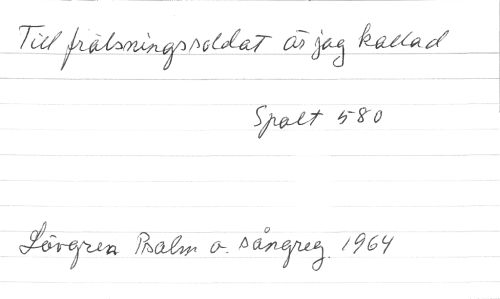 Till frälsningssoldat är jag kallad
Spalt 580
Lövgren Psalm o. sångreg. 1964